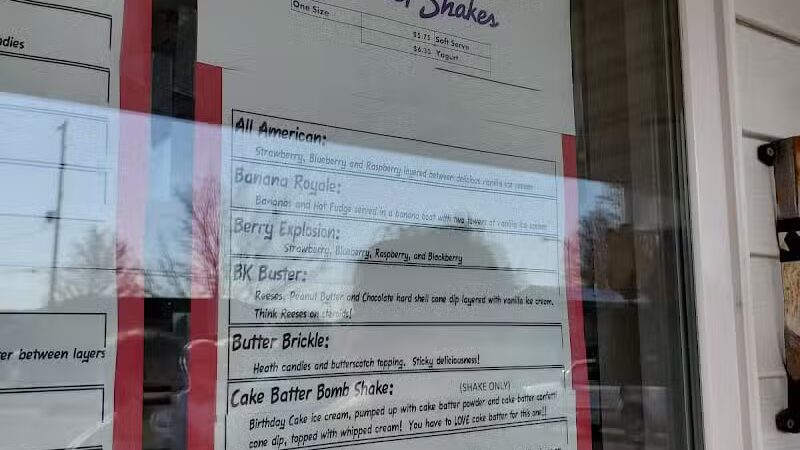 Shakes
One Size
$5.75 Soft Serve
$6.35 Yogurt
dies
All American:
Strawberry, Blueberry and Raspberry layered between delicious vanilla ice cream
Banana Royale:
Bananas and Hot Fudge served in a banana boat with two towers of vanilla ice cream
Berry Explosion:
Strawberry, Blueberry, Raspberry, and Blackberry
BK Buster:
Reeses, Peanut Butter and Chocolate hard shell cone dip layered with vanilla ice cream.
Think Reeses on steroids!
er between layers
Butter Brickle:
Heath candies and butterscotch topping. Sticky deliciousness!
Cake Batter Bomb Shake: (SHAKE ONLY)
Birthday Cake ice cream, pumped up with cake batter powder and cake batter confetti
cone dip, topped with whipped cream! You have to LOVE cake batter for this one!!